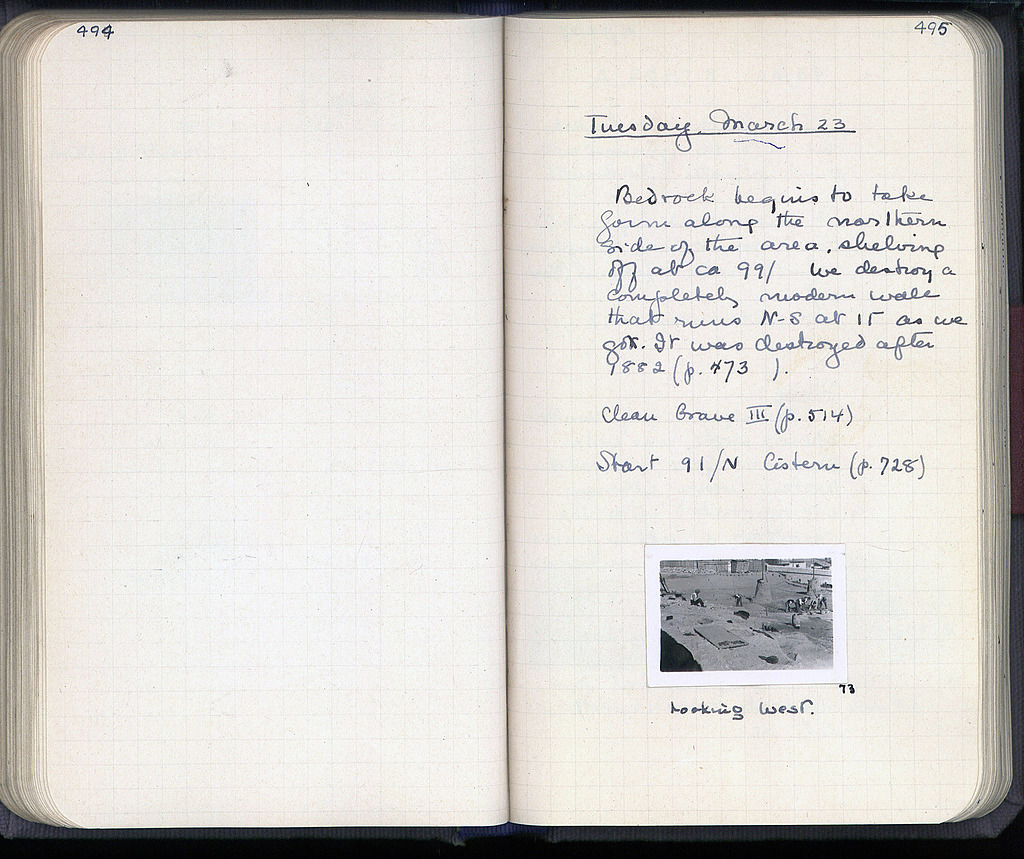 494
495
Tuesday, March 23
Bedrock begins to take
form along the northern
side of the area, shelving
off at ca 99/ we destroy a
completely modern wall
that runs N-S at 15 as we
got. It was destroyed after
1882 (p. 473 ).
Clean Grave III (p. 514)
Start 91/N Cistern (p. 728)
73
Looking West.